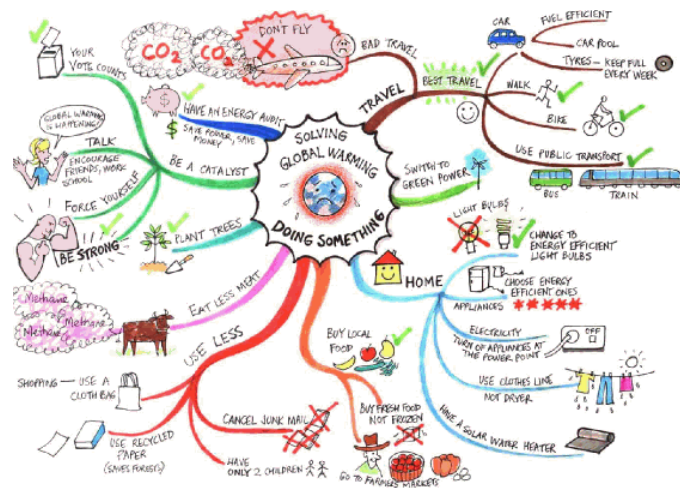 SOLVING
GLOBAL WARMING
DOING SOMETHING
TRAVEL
BAD TRAVEL
DON'T FLY
CO2
CO2
BEST TRAVEL
CAR
FUEL EFFICIENT
CAR POOL
TYRES — KEEP FULL
EVERY WEEK
WALK
BIKE
USE PUBLIC TRANSPORT
BUS
TRAIN
SWITCH TO
GREEN POWER
HOME
LIGHT BULBS
CHANGE TO
ENERGY EFFICIENT
LIGHT BULBS
CHOOSE ENERGY
EFFICIENT ONES
APPLIANCES
ELECTRICITY
TURN OF APPLIANCES AT
THE POWER POINT
OFF
USE CLOTHES LINE
NOT DRYER
HAVE A SOLAR WATER HEATER
BUY LOCAL
FOOD
BUY FRESH FOOD
NOT FROZEN
GO TO FARMERS MARKETS
USE LESS
CANCEL JUNK MAIL
HAVE
ONLY 2 CHILDREN
USE RECYCLED
PAPER
(SAVES FORESTS)
SHOPPING — USE A
CLOTH BAG
EAT LESS MEAT
Methane
Methane
Methane
PLANT TREES
BE A CATALYST
YOUR
VOTE COUNTS
TALK
GLOBAL WARMING
IS HAPPENING!
ENCOURAGE
FRIENDS, WORK
SCHOOL
FORCE YOURSELF
BE STRONG
HAVE AN ENERGY AUDIT
SAVE POWER, SAVE
MONEY
$